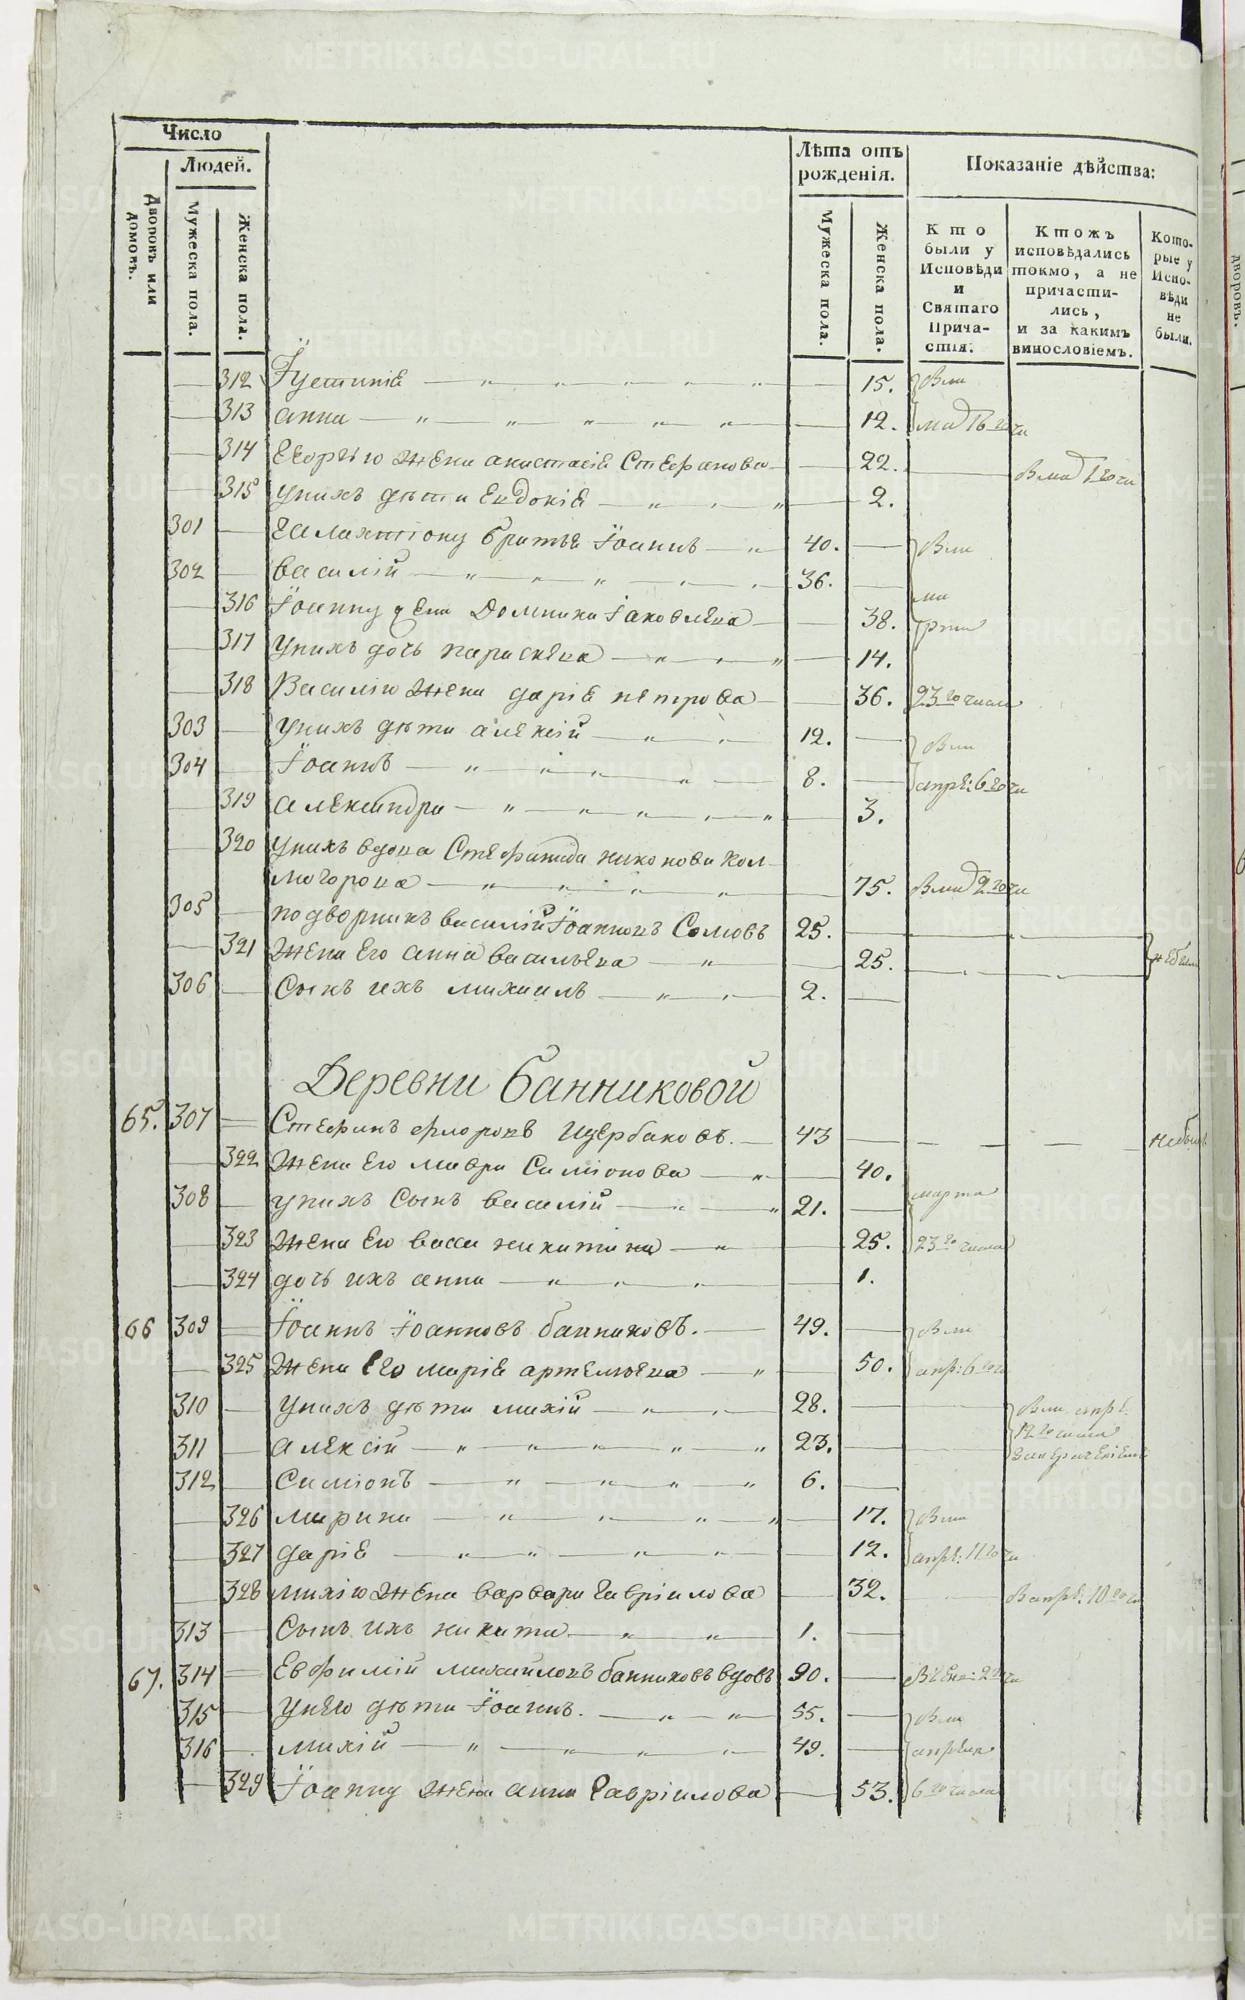 Число
Людей.
Дворовъ или домовъ.
Мужеска пола.
Женска пола.
Лѣта отъ рожденія.
Мужеска пола.
Женска пола.
Показаніе дѣйства:
Кто были у Исповѣди и Святаго Прича-стія.
Ктожъ исповѣдались токмо, а не причасти-лись, и за какимъ винословіемъ.
Кото-рые у Испо-вѣди не были.
312 Іустиніе 15. Вма
313 анна 12. ма 16 го чи
314 Георгію жена анастасіе Стефанова 22. В ма 1 го чи
315 унихъ дѣти Евдокіе 2.
301 Галахтіону братья Іоаннъ 40. Вма
302 василій 36.
316 Іоанну жена Домника Іаковлева 38.
317 унихъ дочь параскева 14.
318 Василію жена даріе петрова 36. 23 го числа
303 унихъ дѣти алексій 12. Вма
304 Іоаннъ 8. апрѣ: 6 го чи
319 александра 3.
320 унихъ вдова Стефанида никонова Кол-
могорова 75. Вма 2 го чи
305 подворникъ василій Іоанновъ Сомовъ 25.
321 жена Его анна васильева 25. небыли
306 Сынъ ихъ михаилъ 2.
Деревни Банниковой
65. 307 Стефанъ флоровъ Щербаковъ. 43 небылъ
322 жена Его мавра Симіонова 40.
308 унихъ Сынъ василій 21. марта
323 жена Его васса никитина 25. 23 го числа
324 дочь ихъ анна 1.
66 309 Іоаннъ Іоанновъ банниковъ. 49. Вма
325 жена Его маріе артемьева 50. апр: 6 го чи
310 унихъ дѣти михій 28. Вма апрѣ.
311 алексій 23. 12 го числа
312 Симіонъ 6.
326 марина 17. Вма
327 даріе 12. апрѣ: 11 го чи
328 михію жена варвара гавріилова 32. В апрѣ: 10 го чи
313 Сынъ ихъ никита 1.
67. 314 Евфимій михайловъ банниковъ вдовъ 90.
315 унего дѣти Іоаннъ. 55. Вма
316 михій 49. апрѣля
329 Іоанну жена анна Гавріилова 53. 6 го числа